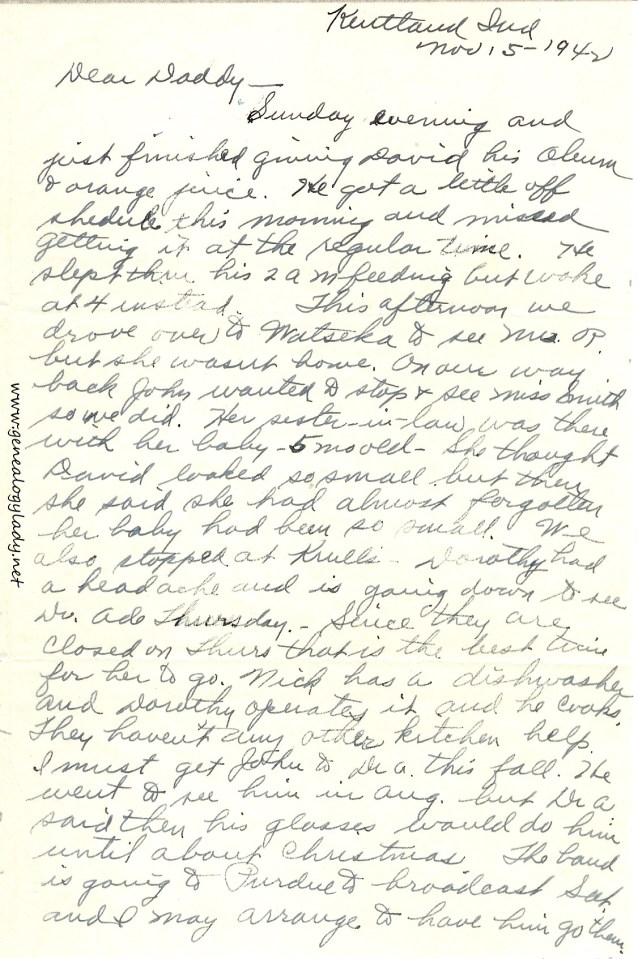 Kentland Ind
Nov 15-1942
Dear Daddy—
Sunday evening and
just finished giving David his Oleum
& orange juice. He got a little off
shedule this morning and missed
getting it at the regular time. He
slept thru his 2 a m feeding but woke
at 4 instead. This afternoon we
drove over to Watseka to see Mrs. P.
but she wasn't home. On our way
back John wanted to stop & see Miss Smith
so we did. Her sister-in-law was there
with her baby - 5 mo old - She thought
David looked so small but then
she said she had almost forgotten
her baby had been so small. We
also stopped at Krull's - Dorothy had
a headache and is going down to see
Dr. Ade Thursday. - Since they are
closed on Thurs that is the best time
for her to go. Nick has a dishwasher
and Dorothy operates it and he cooks.
They haven't any other kitchen help.
I must get John to Dr a. this fall. He
went to see him in Aug. but Dr a
said then his glasses would do him
until about Christmas The band
is going to Purdue to broadcast Sat.
and I may arrange to have him go then.
www.genealogylady.net